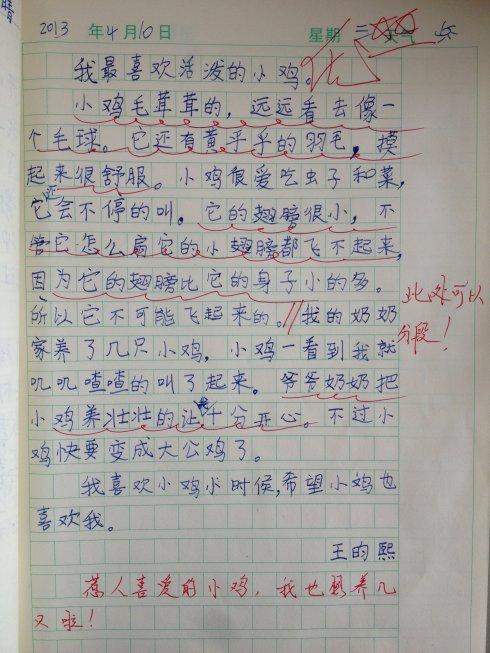 2013 年4月10日 星期三
我最喜欢活泼的小鸡。
小鸡毛茸茸的，远远看去像一
个毛球。它还有黄乎乎的羽毛，摸
起来很舒服。小鸡很爱吃虫子和菜，
它还会不停的叫。它的翅膀很小，不
管它怎么扇它的小翅膀都飞不起来，
因为它的翅膀比它的身子小的多。
所以它不可能飞起来的。//我的奶奶
此处可以
分段！
家养了几只小鸡，小鸡一看到我就
叽叽喳喳的叫了起来。爷爷奶奶把
小鸡养壮壮的让我十分开心。不过小
鸡快要变成大公鸡了。
我喜欢小鸡小时候，希望小鸡也
喜欢我。
王昀熙
惹人喜爱的小鸡，我也想养几
只啦！